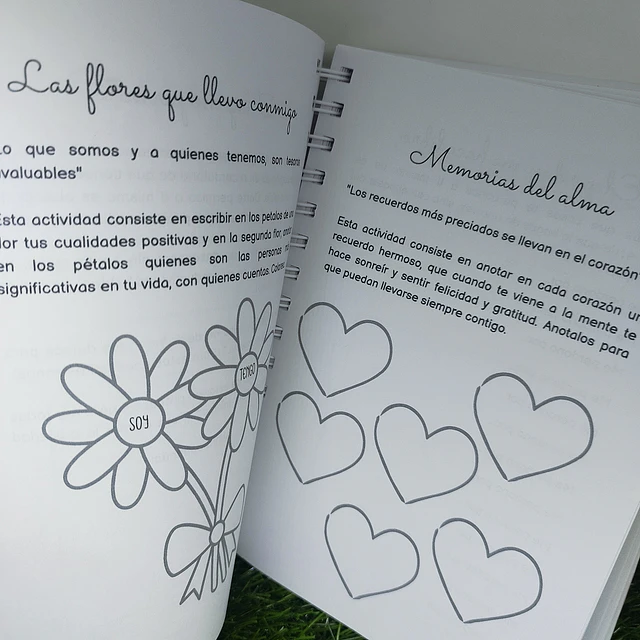 Las flores que llevo conmigo
Lo que somos y a quienes tenemos, son tesoros
invaluables"
Esta actividad consiste en escribir en los pétalos de una
flor tus cualidades positivas y en la segunda flor,
en los pétalos quienes son las personas
significativas en tu vida, con quienes cuentas.
SOY
TENGO
Memorias del alma
"Los recuerdos más preciados se llevan en el corazón
Esta actividad consiste en anotar en cada corazón un
recuerdo hermoso, que cuando te viene a la mente te
hace sonreír y sentir felicidad y gratitud. Anotalos para
que puedan llevarse siempre contigo.